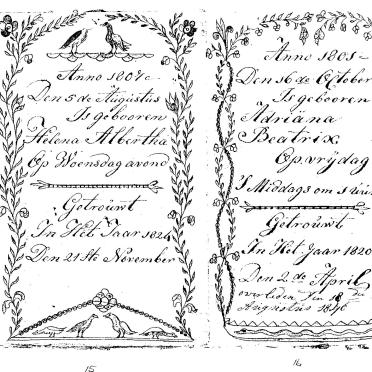 Anno 1807
Den 5 de Augustus
Is gebooren
Helena Albertha
Op Woensdag avond
Getrouwt
In Het Jaar 1824
Den 21ste November
15
Anno 1801
Den 16 de October
Is gebooren
Adriana
Beatrix
Op vrijdag
S Middags om 1 uur
Getrouwt
In Het Jaar 1820
Den 2 de April
overleden den 18 den
Augustus 1840
16